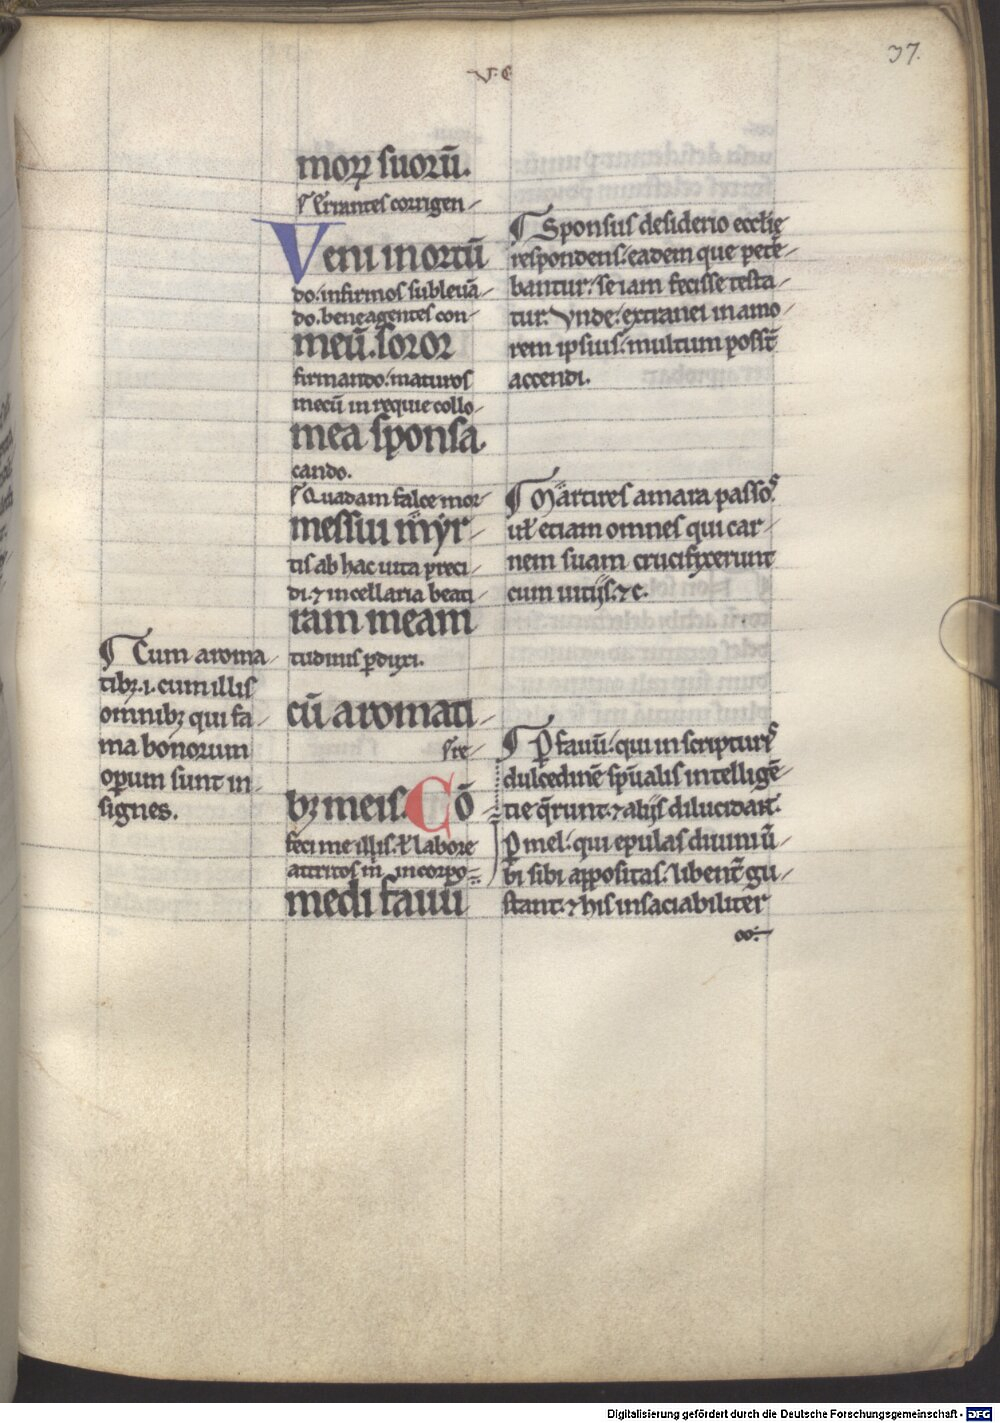 37.
V. C
moꝝ suorū.
¶ Errantes corrigen-
Veni in ortū
do. infirmos subleuā-
do. bene agentes con-
meū. soror
firmando. maturos
mecū in requie collo-
mea sponsa.
cando.
¶ Quadam falce mor-
messui mÿr-
tis ab hac uita preci-
di. ⁊ in cellaria beati-
ram meam
tudinis ꝑduxi.
cū aromati-
bꝫ meis. Cō-
feci me illis. ꝑ labore
attritos m̄ incorpo-
medi fauū
¶ Sponsus desiderio eccl̄ię
respondens. eadem que petē-
bantur. se iam fecisse testa-
tur. Vnde. extranei in amo-
rem ipsius. multum poss̄t
accendi.
¶ Martires amara passos.
ul̄ etiam omnes qui car-
nem suam crucifixerunt
cum uitijs. ⁊c.
¶ Cum aroma-
tibꝫ .i. cum illis
omnibꝫ qui fa-
ma bonorum
oꝑum sunt in-
signes.
¶ ꝑ fauū. qui in scripturis
dulcedinē sp̄ualis intelligē-
tie q̄runt. ⁊ alijs dilucidant.
ꝑ mel. qui epulas diuini ū-
bi sibi appositas. libent̄ gu-
stant. ⁊ his insaciabiliter